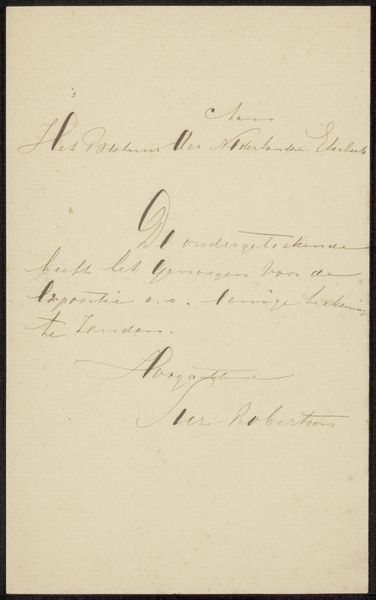 Aan
Het Bestuur der Nederlandsche Etsclub
De ondergeteekende
heeft het genoegen voor de
Expositie o.s. eenige teekening
te zenden.
Hoogachtend
Suze Robertson